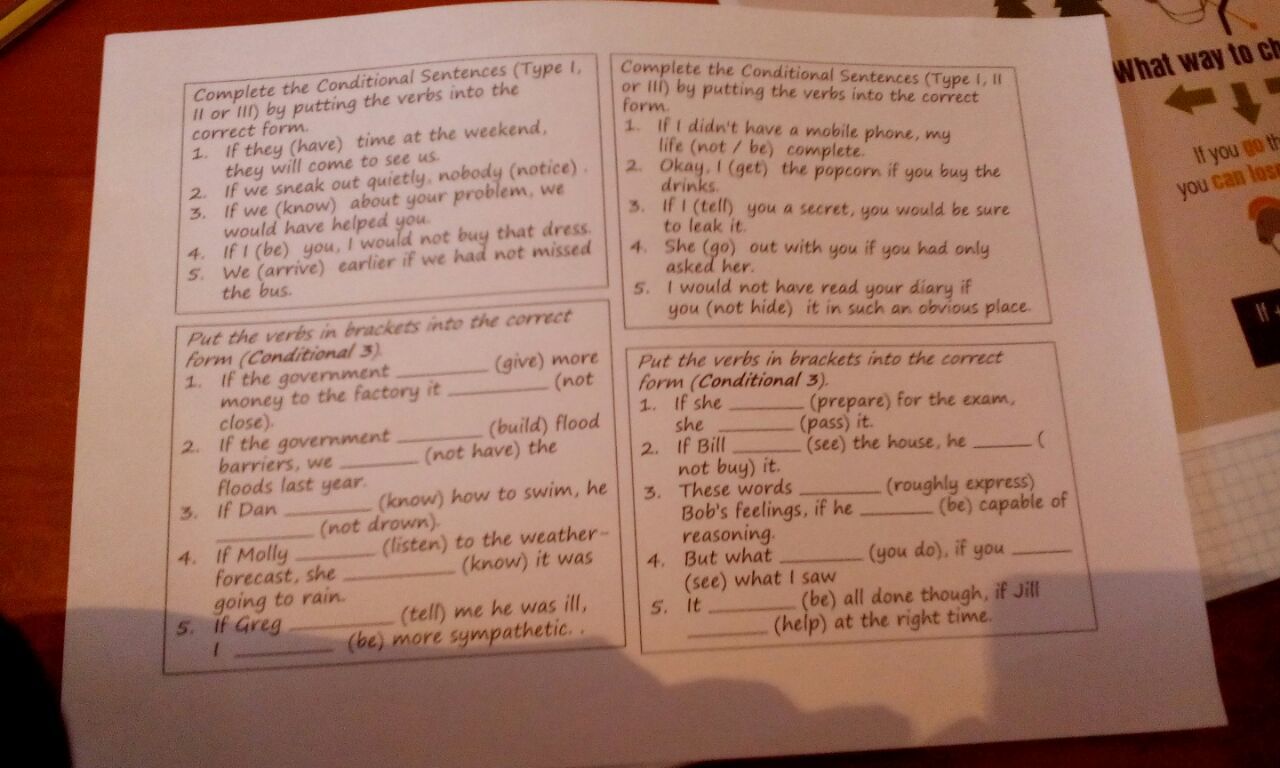 Complete the Conditional Sentences (Type I,
II or III) by putting the verbs into the
correct form.
1. If they (have) time at the weekend,
they will come to see us.
2. If we sneak out quietly, nobody (notice) .
3. If we (know) about your problem, we
would have helped you.
4. If I (be) you, I would not buy that dress.
5. We (arrive) earlier if we had not missed
the bus.
Complete the Conditional Sentences (Type I, II
or III) by putting the verbs into the correct
form.
1. If I didn't have a mobile phone, my
life (not / be) complete.
2. Okay, I (get) the popcorn if you buy the
drinks.
3. If I (tell) you a secret, you would be sure
to leak it.
4. She (go) out with you if you had only
asked her.
5. I would not have read your diary if
you (not hide) it in such an obvious place.
Put the verbs in brackets into the correct
form (Conditional 3).
1. If the government __________ (give) more
money to the factory it ___________ (not
close).
2. If the government _________ (build) flood
barriers, we _________ (not have) the
floods last year.
3. If Dan __________ (know) how to swim, he
___________ (not drown).
4. If Molly _________ (listen) to the weather-
forecast, she ____________ (know) it was
going to rain.
5. If Greg ____________ (tell) me he was ill,
I ___________ (be) more sympathetic. .
Put the verbs in brackets into the correct
form (Conditional 3).
1. If she ________ (prepare) for the exam,
she ________ (pass) it.
2. If Bill _______ (see) the house, he ______ (
not buy) it.
3. These words _________ (roughly express)
Bob's feelings, if he ________ (be) capable of
reasoning.
4. But what _________ (you do), if you ______
(see) what I saw
5. It __________ (be) all done though, if Jill
_________ (help) at the right time.
What way to ch
If you go th
you can lose
If